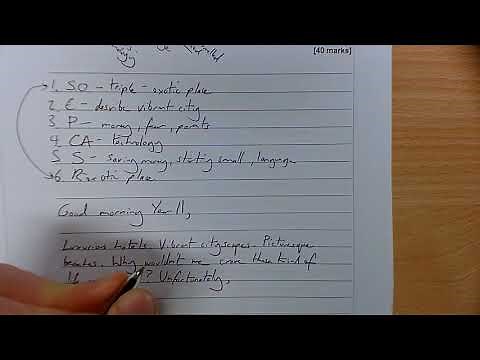 [40 marks]
1. SO - triple - exotic place
2. E - describe vibrant city
3. P - money, few, points
4. CA - technology
5. S - saving money, starting small, language
6. exotic place
Good morning Year 11,
Luxurious hotels. Vibrant cityscapes. Picturesque
beaches. Why wouldn't we crave these kind of
? Unfortunately,